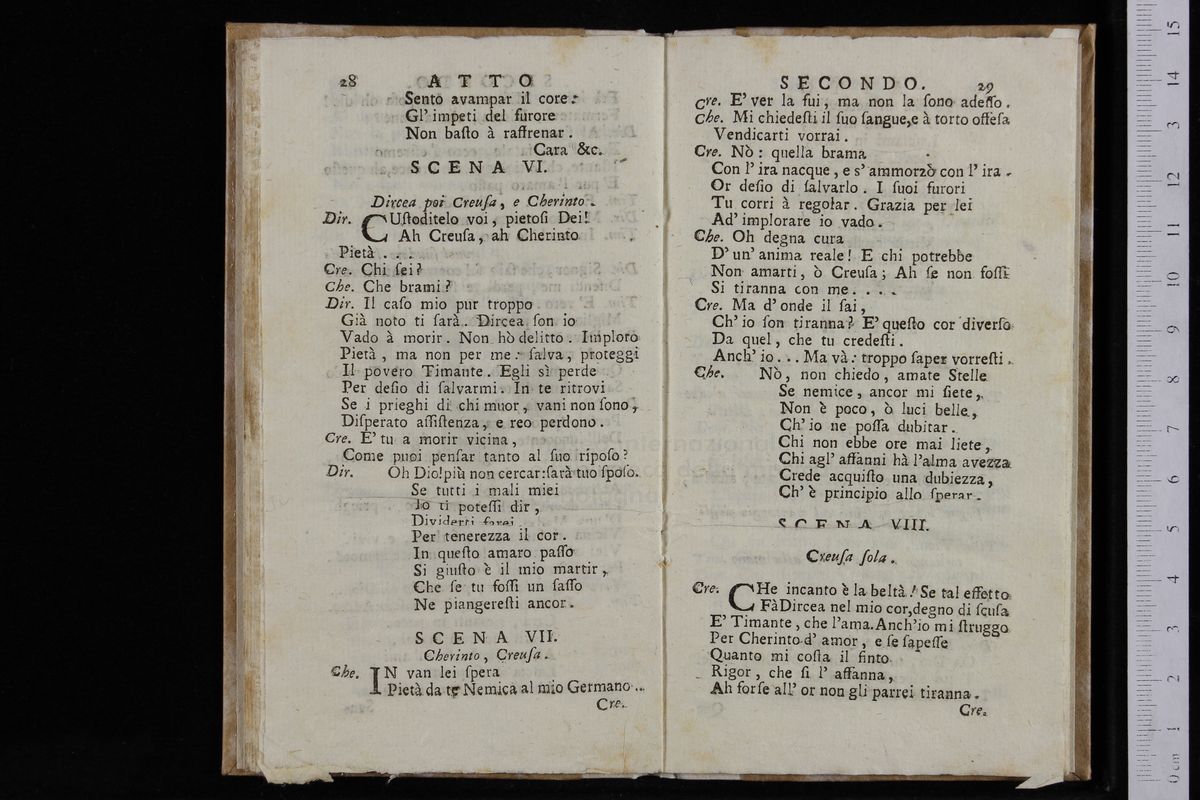 28 ATTO
Sento avampar il core:
Gl' impeti del furore
Non basto à raffrenar.
Cara &c.
SCENA VI.
Dircea poi Creuſa, e Cherinto.
Dir. CUſtoditelo voi, pietoſi Dei!
Ah Creuſa, ah Cherinto
Pietà . . .
Cre. Chi ſei?
Che. Che brami?
Dir. Il caſo mio pur troppo
Già noto ti ſarà. Dircea ſon io
Vado à morir. Non hò delitto. Imploro
Pietà, ma non per me: ſalva, proteggi
Il povero Timante. Egli sì perde
Per deſio di ſalvarmi. In te ritrovi
Se i prieghi di chi muor, vani non ſono,
Diſperato aſſiſtenza, e reo perdono.
Cre. E' tu a morir vicina,
Come puoi penſar tanto al ſuo ripoſo?
Dir. Oh Dio! più non cercar: ſarà tuo ſpoſo.
Se tutti i mali miei
Io ti poteſſi dir,
Dividerti farei
Per tenerezza il cor.
In queſto amaro paſſo
Si giuſto è il mio martir,
Che ſe tu foſſi un ſaſſo
Ne piangereſti ancor.
SCENA VII.
Cherinto, Creuſa.
Che. IN van lei ſpera
Pietà da te Nemica al mio Germano...
Cre.
SECONDO. 29
Cre. E' ver la fui, ma non la ſono adeſſo.
Che. Mi chiedeſti il ſuo ſangue, e à torto offeſa
Vendicarti vorrai.
Cre. Nò: quella brama
Con l' ira nacque, e s' ammorzò con l' ira.
Or deſio di ſalvarlo. I ſuoi furori
Tu corri à regolar. Grazia per lei
Ad' implorare io vado.
Che. Oh degna cura
D' un' anima reale! E chi potrebbe
Non amarti, ò Creuſa; Ah ſe non foſſi
Si tiranna con me. . . .
Cre. Ma d' onde il ſai,
Ch' io ſon tiranna? E' queſto cor diverſo
Da quel, che tu credeſti.
Anch' io... Ma và: troppo ſaper vorreſti.
Che. Nò, non chiedo, amate Stelle
Se nemice, ancor mi ſiete,
Non è poco, ò luci belle,
Ch' io ne poſſa dubitar.
Chi non ebbe ore mai liete,
Chi agl' affanni hà l'alma avezza
Crede acquiſto una dubiezza,
Ch' è principio allo ſperar.
SCENA VIII.
Creuſa ſola.
Cre. CHe incanto è la beltà! Se tal effetto
Fà Dircea nel mio cor, degno di ſcuſa
E' Timante, che l'ama. Anch'io mi ſtruggo
Per Cherinto d' amor, e ſe ſapeſſe
Quanto mi coſta il finto
Rigor, che ſi l' affanna,
Ah forſe all' or non gli parrei tiranna.
Cre.